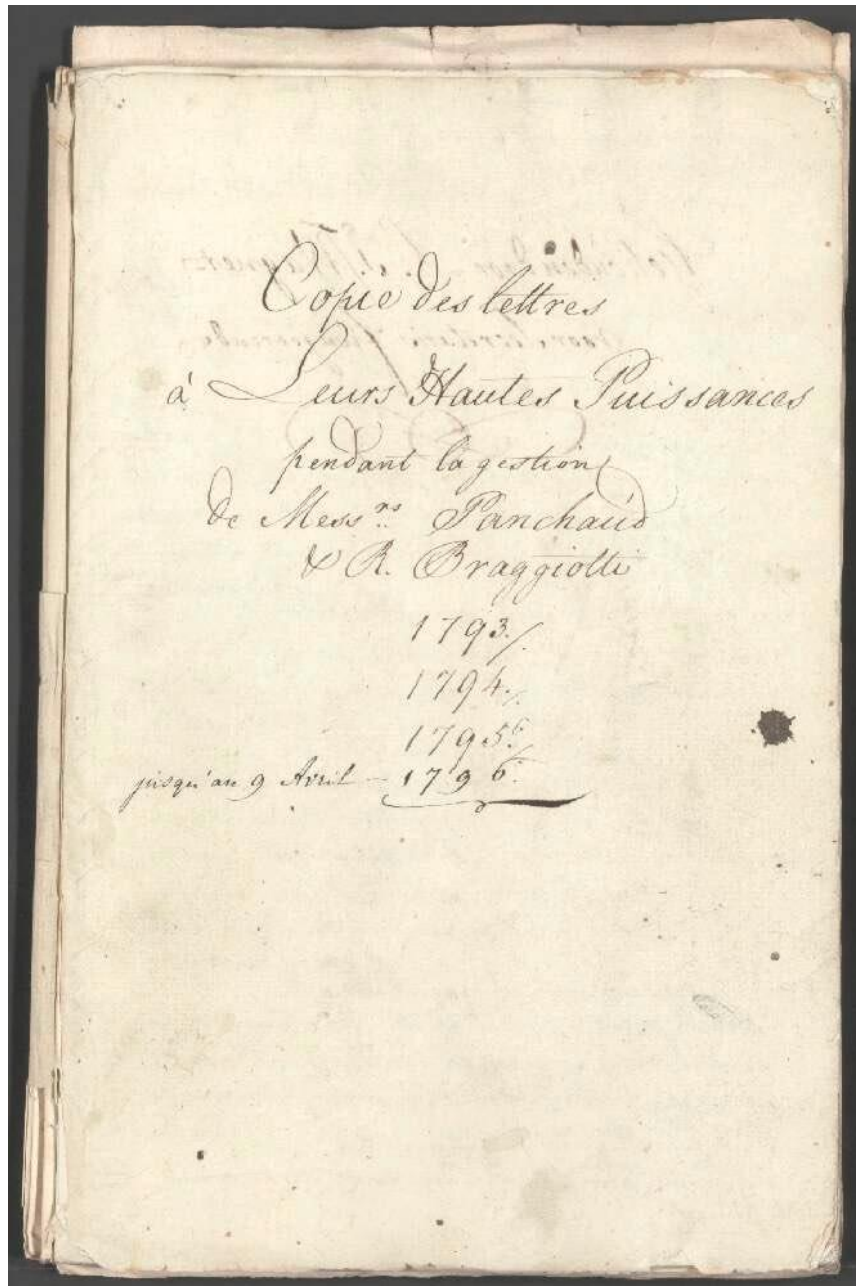 Copie des lettres
à Leurs Hautes Puissances
pendant la gestion
de Mess.rs Panchaud
& R. Braggiotti
1793./.
1794./.
1795./.
jusqu'au 9 Avril - 1796.